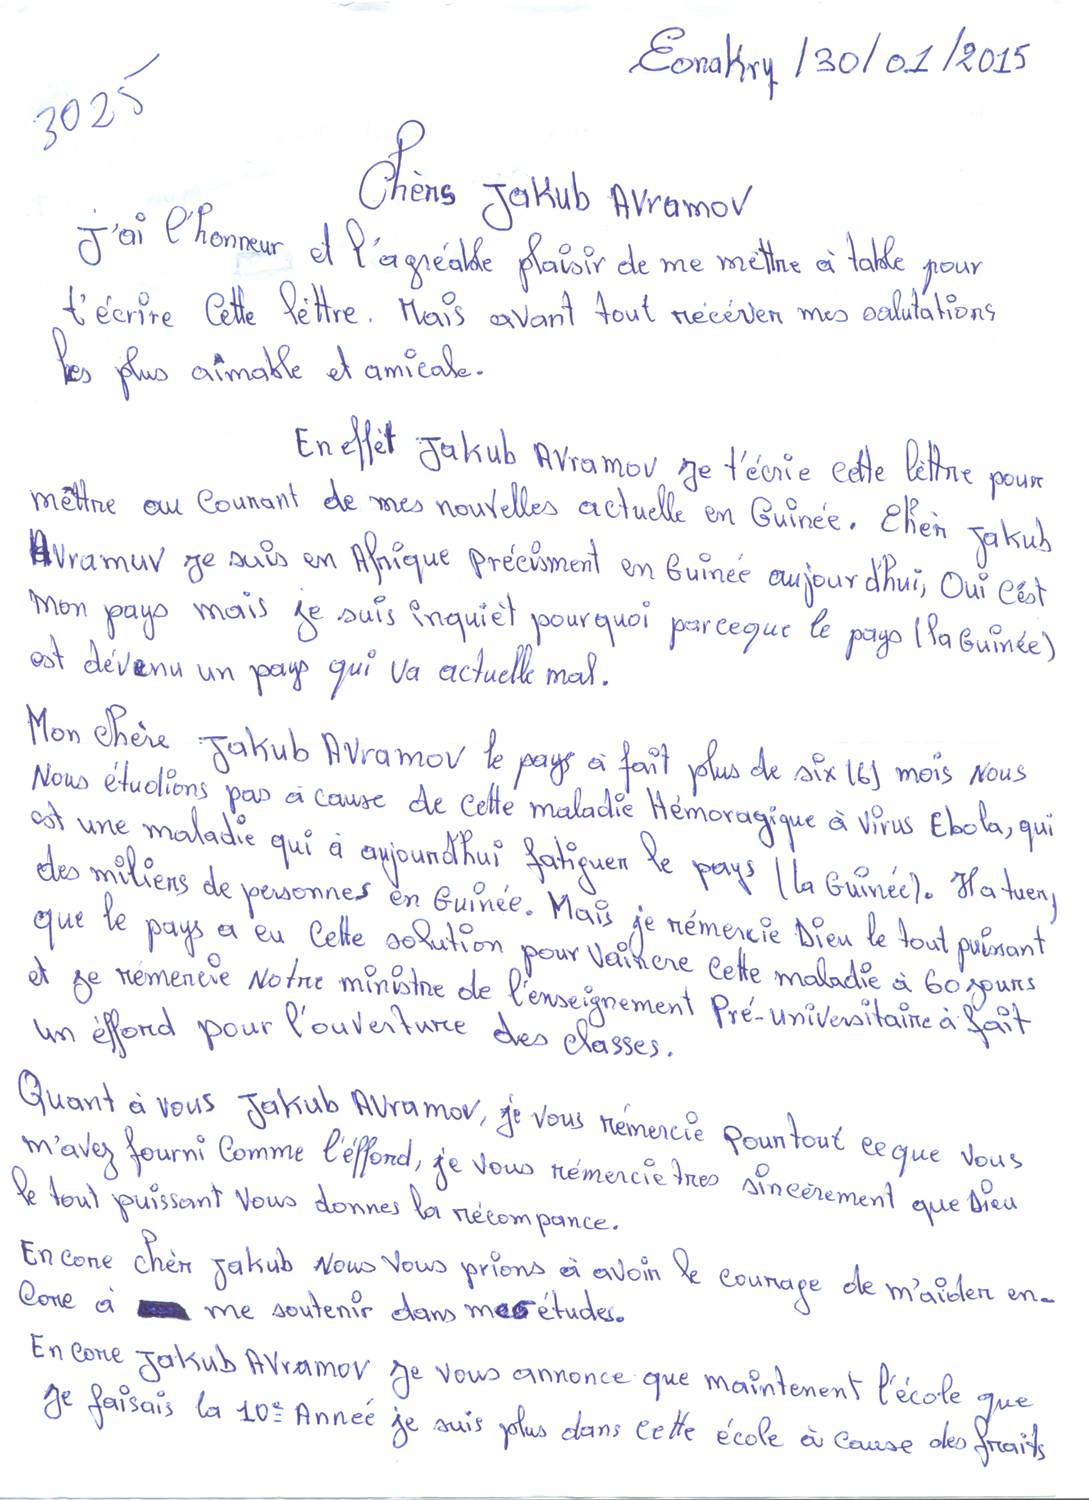 Conakry /30/01/2015
3025
Chèrs Jakub Avramov
J'ai l'honneur et l'agréable plaisir de me mèttre à table pour
t'écrire Cette lèttre. Mais avant tout récéver mes salutations
les plus aimable et amicale.
En effèt Jakub Avramov je t'écrie cette lèttre pour
mèttre au Courant de mes nouvelles actuelle en Guinée. Chèr Jakub
Avramuv je suis en Afrique Précisment en Guinée aujour d'hui, Oui C'ést
Mon pays mais je suis inquièt pourquoi parceque le pays (la Guinée)
est dévenu un pays qui va actuelle mal.
Mon Chère Jakub Avramov le pays à faît plus de six (6) mois Nous
Nous étudions pas à cause de cette maladie Hémoragique à Virus Ebola, qui
est une maladie qui à aujourd'hui fatiguer le pays (la Guinée). Il a tuer,
des miliers de personnes en Guinée. Mais je rémercie Dieu le tout puissant
que le pays a eu Cette solution pour Vaincre Cette maladie à 60 jours
et je rémercie Notre ministre de l'enseignement Pré-universitaire à faît
un éfford pour l'ouverture des classes.
Quant à vous Jakub Avramov, je vous rémercie Pour tout ce que vous
m'avez fourni Comme l'éfford, je vous rémercie tres sincèrement que Dieu
le tout puissant vous donnes la récompance.
En core chèr Jakub Nous Vous prions à avoir le courage de m'aider en-
Core à me soutenir dans mes études.
En Core Jakub Avramov je vous annonce que maintenent l'école que
je faisais la 10e Anneé je suis plus dans cette école à Cause des fraits